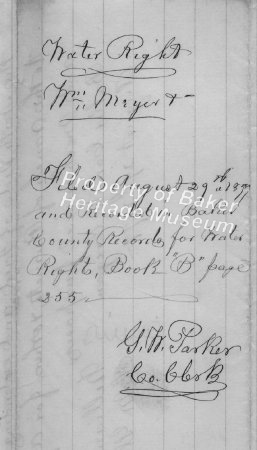 Water Right
Wm Meyer &
Filed August 29th 1877
and Record in Baker
County Records, for Water
Right, Book "B" page
255
G. W. Parker
Co. Clerk
Property of Baker
Heritage Museum